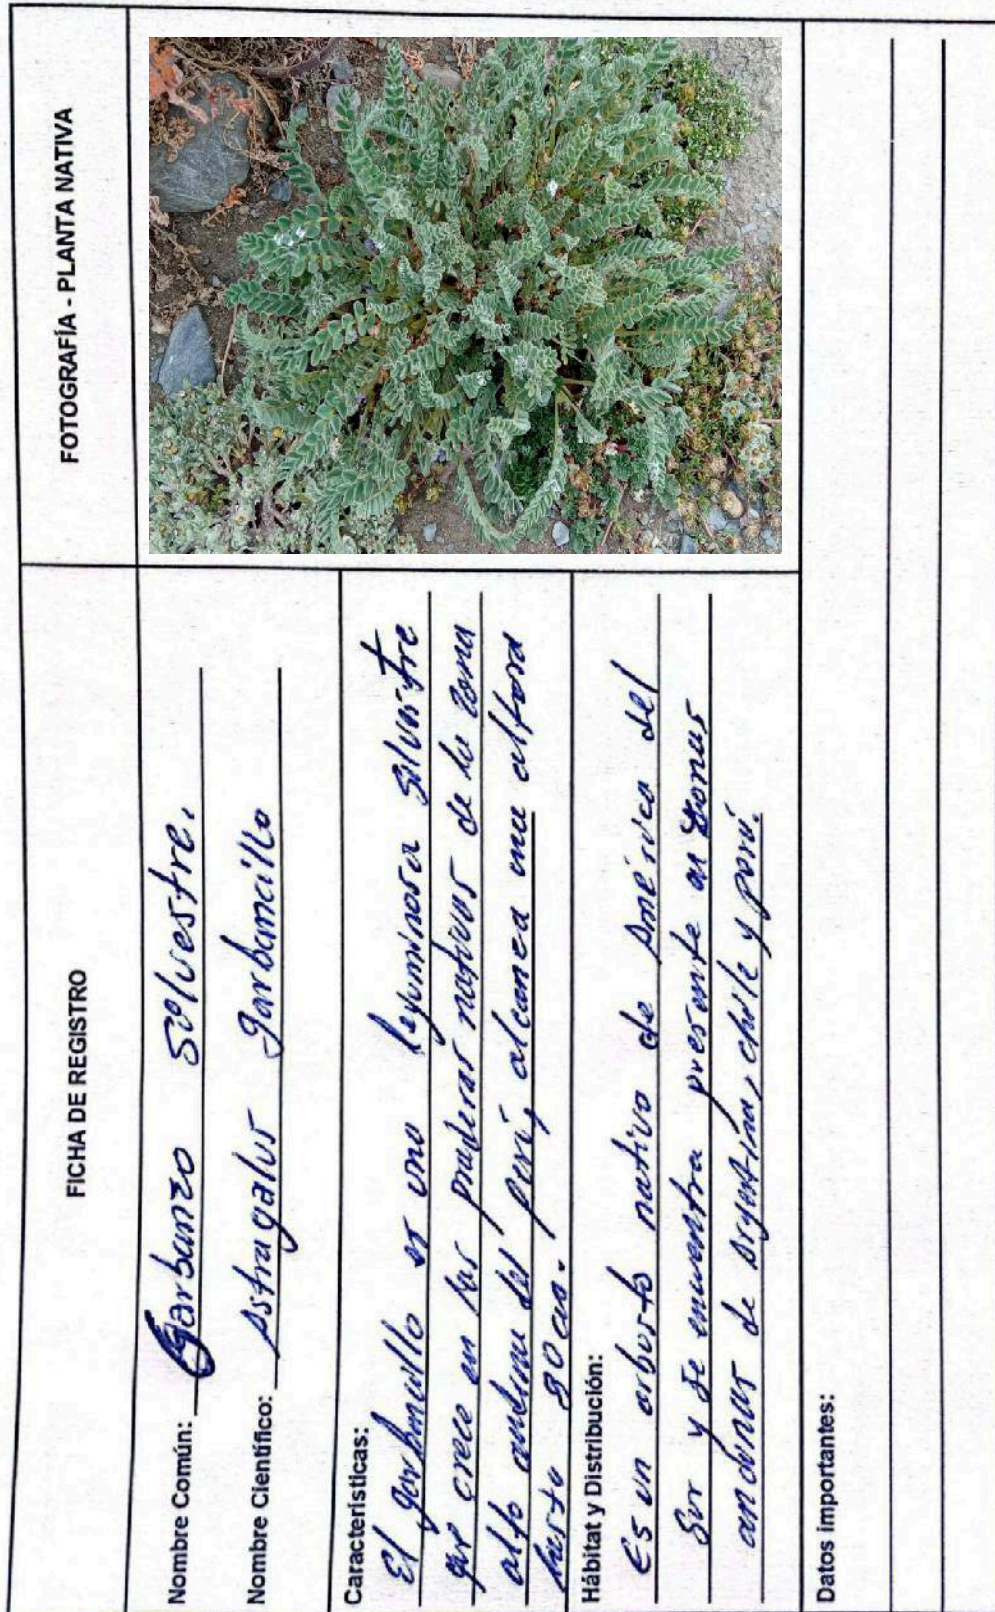 FICHA DE REGISTRO
FOTOGRAFÍA - PLANTA NATIVA
Nombre Común: Garbanzo Silvestre.
Nombre Científico: Astragalus garbancillo
Características:
El garbancillo es una leguminosa silvestre
que crece en las praderas nativas de la zona
alto andina del perú, alcanza una altura
hasta 80 cm.
Hábitat y Distribución:
Es un arbusto nativo de América del
Sur y se encuentra presente en zonas
andinas de Argentina, chile y perú.
Datos importantes: